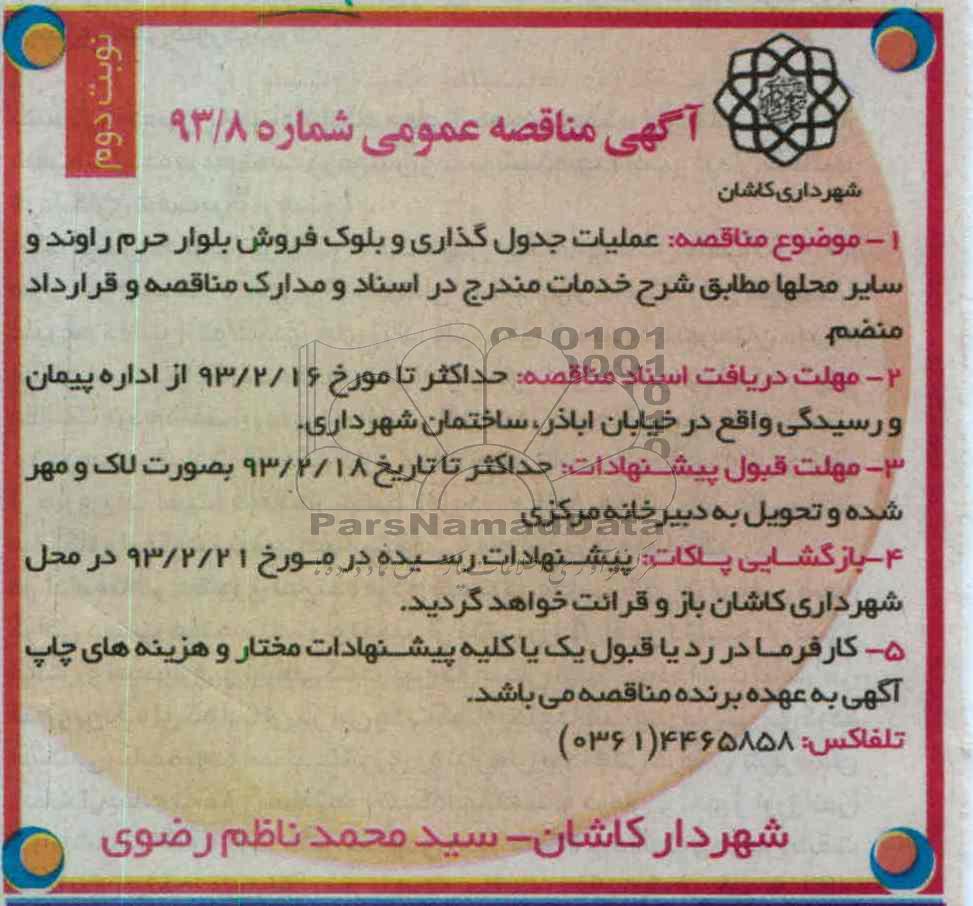 نوبت دوم
آگهی مناقصه عمومی شماره ۹۳/۸
شهرداری کاشان
۱- موضوع مناقصه: عملیات جدول گذاری و بلوک فروش بلوار حرم راوند و
سایر محلها مطابق شرح خدمات مندرج در اسناد و مدارک مناقصه و قرارداد
منضم.
۲- مهلت دریافت اسناد مناقصه: حداکثر تا مورخ ۹۳/۲/۱۶ از اداره پیمان
و رسیدگی واقع در خیابان اباذر، ساختمان شهرداری.
۳- مهلت قبول پیشنهادات: حداکثر تا تاریخ ۹۳/۲/۱۸ بصورت لاک و مهر
شده و تحویل به دبیرخانه مرکزی
ParsNamadData
۴- بازگشایی پاکات: پیشنهادات رسیده در مورخ ۹۳/۲/۲۱ در محل
شهرداری کاشان باز و قرائت خواهد گردید.
۵- کارفرما در رد یا قبول یک یا کلیه پیشنهادات مختار و هزینه های چاپ
آگهی به عهده برنده مناقصه می باشد.
تلفاکس: ۴۴۶۵۸۵۸(۰۳۶۱)
شهردار کاشان- سید محمد ناظم رضوی